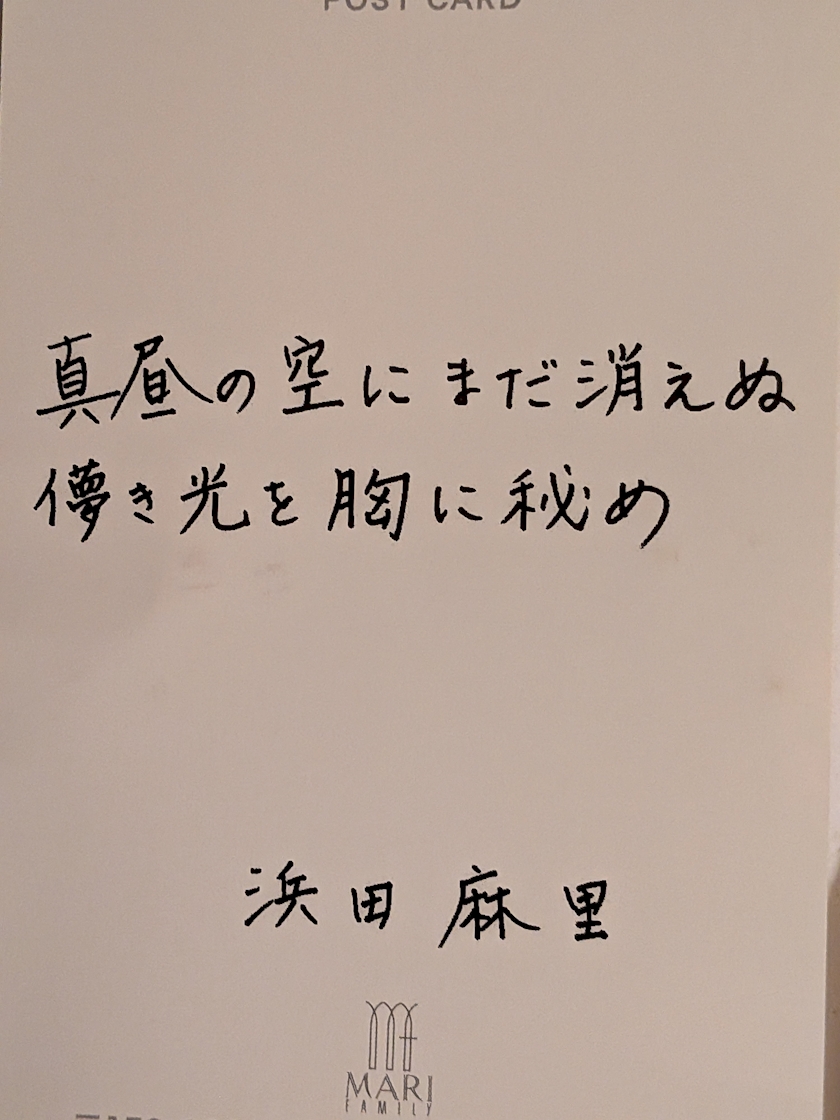 POST CARD
真昼の空にまだ消えぬ
儚き光を胸に秘め
浜田麻里
MARI
FAMILY